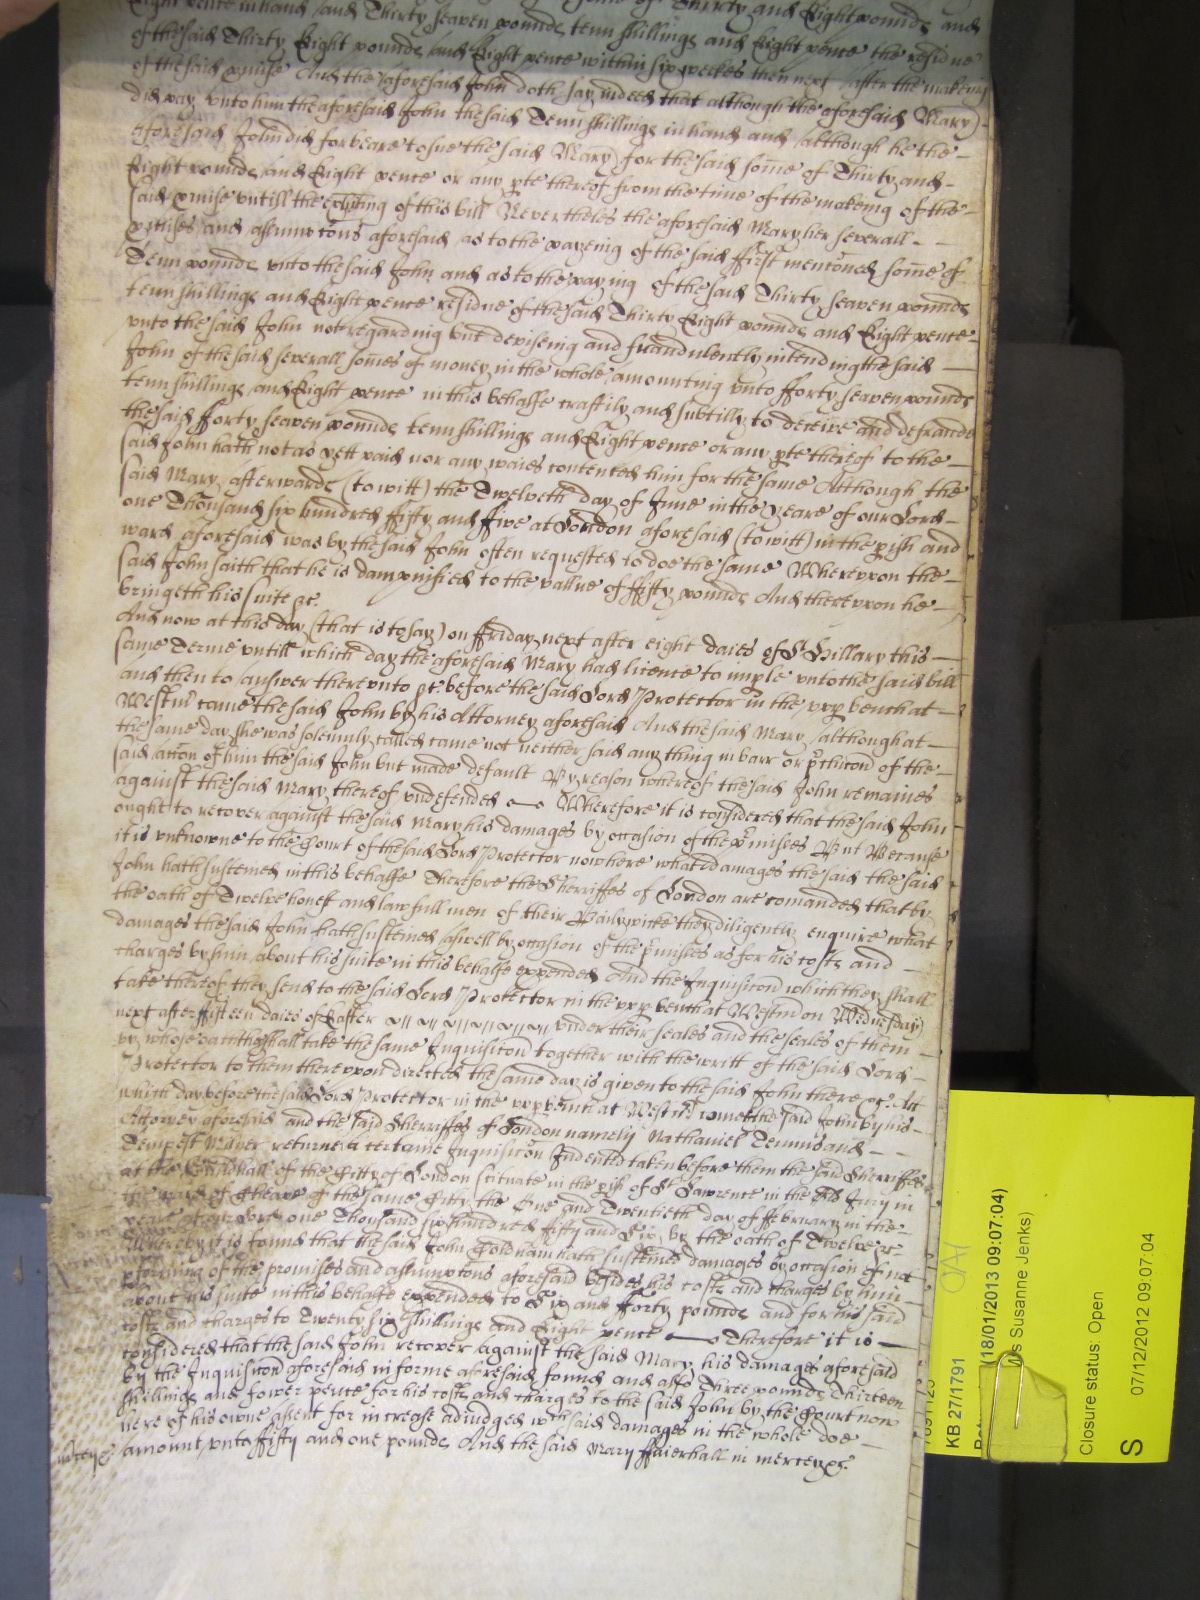 Eight pence in hand and Thirty seaven pounds tenn shillings and Eight pence the residue
of the said Thirty Eight pounds and Eight pence within six weekes then next after the makeing
of the said pmise And the aforesaid John doth say indeed that although the aforesaid Mary
did pay unto him the aforesaid John the said Tenn shillings in hand and although he the
aforesaid John did forbeare to sue the said Mary for the said some of Thirty and
Eight pounds and Eight pence or any pte thereof from the time of the makeing of the
said pmise untill the exhibiting of this bill Nevertheles the aforesaid Mary her severall
pmises and assumptons aforesaid as to the payeing of the said ffirst mentoned some of
Tenn pounds unto the said John and as to the paying of the said Thirty seaven pounds
tenn shillings and Eight pence residue of the said Thirty Eight pounds and Eight pence
unto the said John not regarding but deviseing and fraudulently intending the said
John of the said severall somes of money in the whole amounting unto fforty seaven pounds
tenn shillings and Eight pence in this behalfe craftily and subtilly to deceive and defraude
the said fforty seaven pounds tenn shillings and Eight pence or any pte thereof to the
said John hath not as yett paid nor any waies contented him for the same Although the
said Mary afterwards (to witt) the Twelveth day of June in the yeare of our Lord
one Thousand six hundred ffifty and ffive at London aforesaid (to witt) in the pish and
ward aforesaid was by the said John often requested to doe the same Whereupon the
said John saith that he is dampnified to the vallue of ffifty pounds And thereupon he
bringeth his suite &c.
And now at this day (that is to say) on ffriday next after eight daies of St Hillary this
same Terme untill which day the aforesaid Mary had licence to imple unto the said bill
and then to answer thereunto &c. before the said Lord Protector in the upp bench at
Westmr came the said John by his Attorney aforesaid And the said Mary although at
the same day she was solemnly called came not neither said any thing in barr or preclucon of the
said action of him the said John but made default By reason whereof the said John remaines
against the said Mary thereof undefended Wherefore it is considered that the said John
ought to recover against the said Mary his damages by occasion of the pmisses But Because
it is unknowne to the Court of the said Lord Protector now here what damages the said the said
John hath susteined in this behalfe Therefore the Sherriffes of London are comanded that by
the oath of Twelve honest and lawfull men of their Bailywicke they diligently enquire what
damages the said John hath susteined aswell by occasion of the pmisses as for his costs and
charges by him about his suite in this behalfe expended And the Inquisicon which they shall
take thereof they send to the said Lord Protector in the upp bench at Westm on Wednesday
next after ffifteen daies of Easter under their seales and the seales of them
by whose oath they shall take the same Inquisicon together with the writt of the said Lord
Protector to them thereupon directed the same day is given to the said John there &c. Att
which day before the said Lord Protector in the upp bench at Westmr cometh the said John by his
Attorney aforesaid and the said Sherriffes of London namely Nathaniel Temms and
Tempest Milner returne a certaine Inquisicon Indented taken before them the said Sherriffes
at the Guildhall of the Citty of London scituate in the pish of St Lawrence in the old Jury in
the ward of Cheape of the same Citty the One and Twentieth day of ffebruary in the
yeare of our Lord one Thousand six hundred fifty and Six by the oath of Twelve &c
Whereby it is found that the said John Coldham hath susteined damages by occasion of not
pforming of the promises and assumptons aforesaid besides his costs and charges by him
about his suite in this behalfe expended to Six and fforty pounds and for his said
costs and charges to Twenty six shillings and Eight pence Therefore it is
considered that the said John recover against the said Mary his damages aforesaid
by the Inquisicon aforesaid in forme aforesaid found and also Three pounds Thirteen
shillings and fower pence for his costs and charges to the said John by the Court now
here of his owne assent for increase adiudged wch said damages in the whole doe
amount unto ffifty and one pounds And the said Mary ffairhall in mercy &c.
KB 27/1791
(18/01/2013 09:07:04)
Ms Susanne Jenks)
Closure status: Open
S 07/12/2012 09:07:04